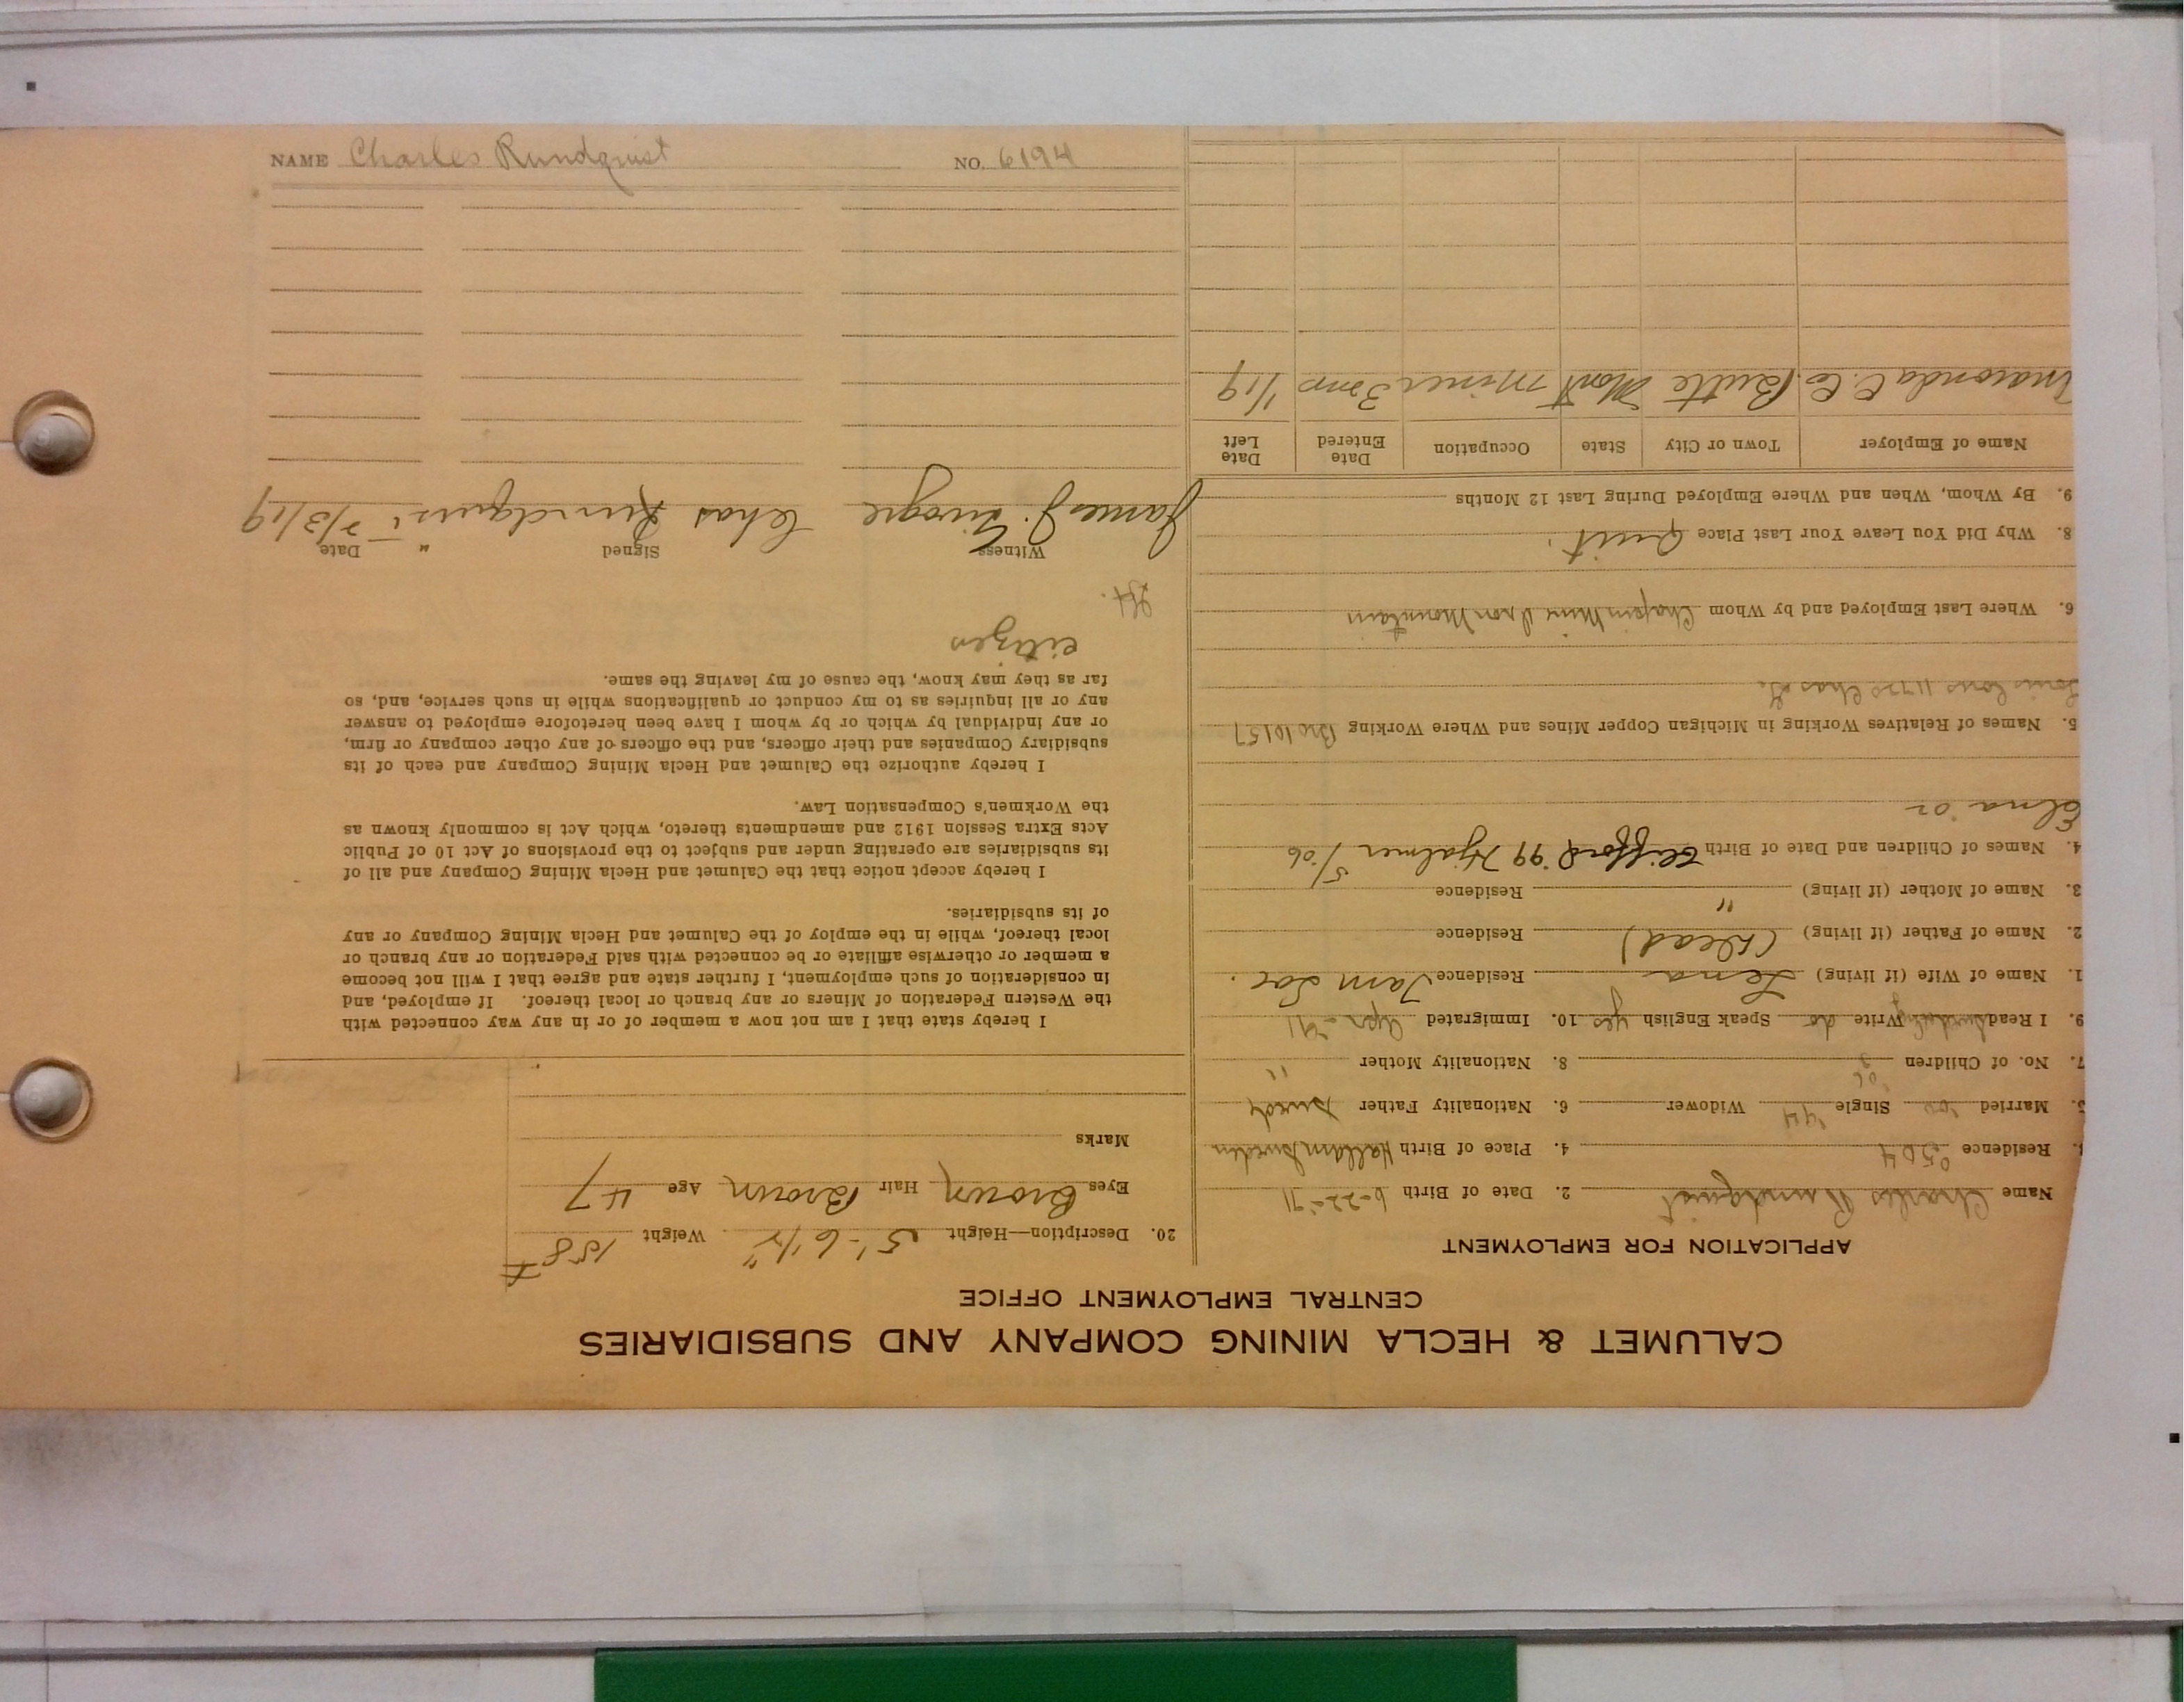 CALUMET & HECLA MINING COMPANY AND SUBSIDIARIES
CENTRAL EMPLOYMENT OFFICE
APPLICATION FOR EMPLOYMENT
Name Charles Rundquist 2. Date of Birth 6-22-'71
Residence 2504 4. Place of Birth Sweden
5. Married '00 Single '94 Widower 6. Nationality Father Swede
'06
7. No. of Children 3 8. Nationality Mother "
9. I Read Write do Speak English yes 10. Immigrated Apr-'91
1. Name of Wife (if living) Lena Residence Tam Loc.
2. Name of Father (if living) (Dead) Residence
3. Name of Mother (if living) " Residence
4. Names of Children and Date of Birth Clifford '99 Hjalmer 5/06
Elma '02
5. Names of Relatives Working in Michigan Copper Mines and Where Working Bro 10157
6. Where Last Employed and by Whom Chapin Mine Iron Mountain
8. Why Did You Leave Your Last Place Quit.
9. By Whom, When and Where Employed During Last 12 Months
Name of Employer Town or City State Occupation Date Entered Date Left
Anaconda C. Co. Butte Mont Miner 3 mo 1/19
20. Description—Height 5'-6 1/2" Weight 158#
Eyes Brown Hair Brown Age 47
Marks
I hereby state that I am not now a member of or in any way connected with
the Western Federation of Miners or any branch or local thereof. If employed, and
in consideration of such employment, I further state and agree that I will not become
a member or otherwise affiliate or be connected with said Federation or any branch or
local thereof, while in the employ of the Calumet and Hecla Mining Company or any
of its subsidiaries.
I hereby accept notice that the Calumet and Hecla Mining Company and all of
its subsidiaries are operating under and subject to the provisions of Act 10 of Public
Acts Extra Session 1912 and amendments thereto, which Act is commonly known as
the Workmen's Compensation Law.
I hereby authorize the Calumet and Hecla Mining Company and each of its
subsidiary Companies and their officers, and the officers of any other company or firm,
or any individual by which or by whom I have been heretofore employed to answer
any or all inquiries as to my conduct or qualifications while in such service, and, so
far as they may know, the cause of my leaving the same.
citizen
Witness Signed Date
James J. Chas Rundquist 2/3/19
NAME Charles Rundquist NO. 6194